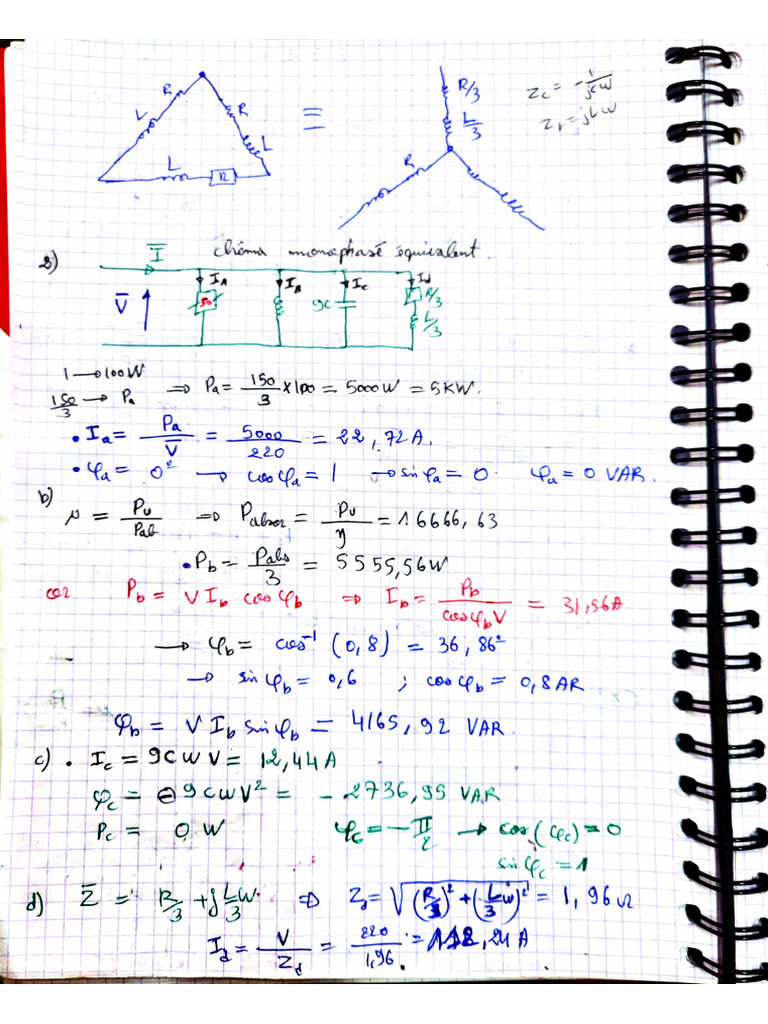 R R R/3 Zc = -1/jcw
L L L/3 Zr = jLw
L R R
2) I̅ chéma monophasé équivalent.
I_A I_B I_c I_d
V̅ 50 9C R/3
L/3
1 → 100W
150/3 → Pa ⇒ Pa = 150/3 × 100 = 5000W = 5KW.
• Ia = Pa/V̅ = 5000/220 = 22,72A.
• φa = 0° → cosφa = 1 → sinφa = 0. φa = 0 VAR.
b) μ = Pu/Pab ⇒ Pabsor = Pu/η = 16666,63
• Pb = Pabs/3 = 5555,56W
car Pb = V Ib cosφb ⇒ Ib = Pb/cosφbV = 31,56A
→ φb = cos⁻¹(0,8) = 36,86°
→ sinφb = 0,6 ; cosφb = 0,8AR
φb = V Ib sinφb = 4165,92 VAR.
c) • Ic = 9cwV = 12,44A
φc = ⊖9cwV² = - 2736,95 VAR
Pc = 0W φc = -π/2 → cos(φc) = 0
sinφc = 1
d) Z̅ = R/3 + jLw/3 ⇒ Zd = √((R/3)² + (Lw/3)²) = 1,96Ω
Id = V/Zd = 220/1,96 = 112,24A